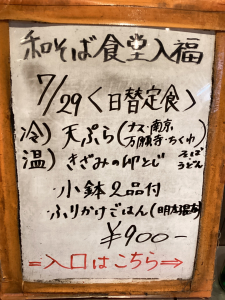 和そば食堂入福
7/29〈日替定食〉
冷) 天ぷら(ナス・南京
万願寺・ちくわ)
温) きざみの卯とじ そば
うどん
・小鉢2品付
・ふりかけごはん(明太
¥900-
=入口はこちら⇒